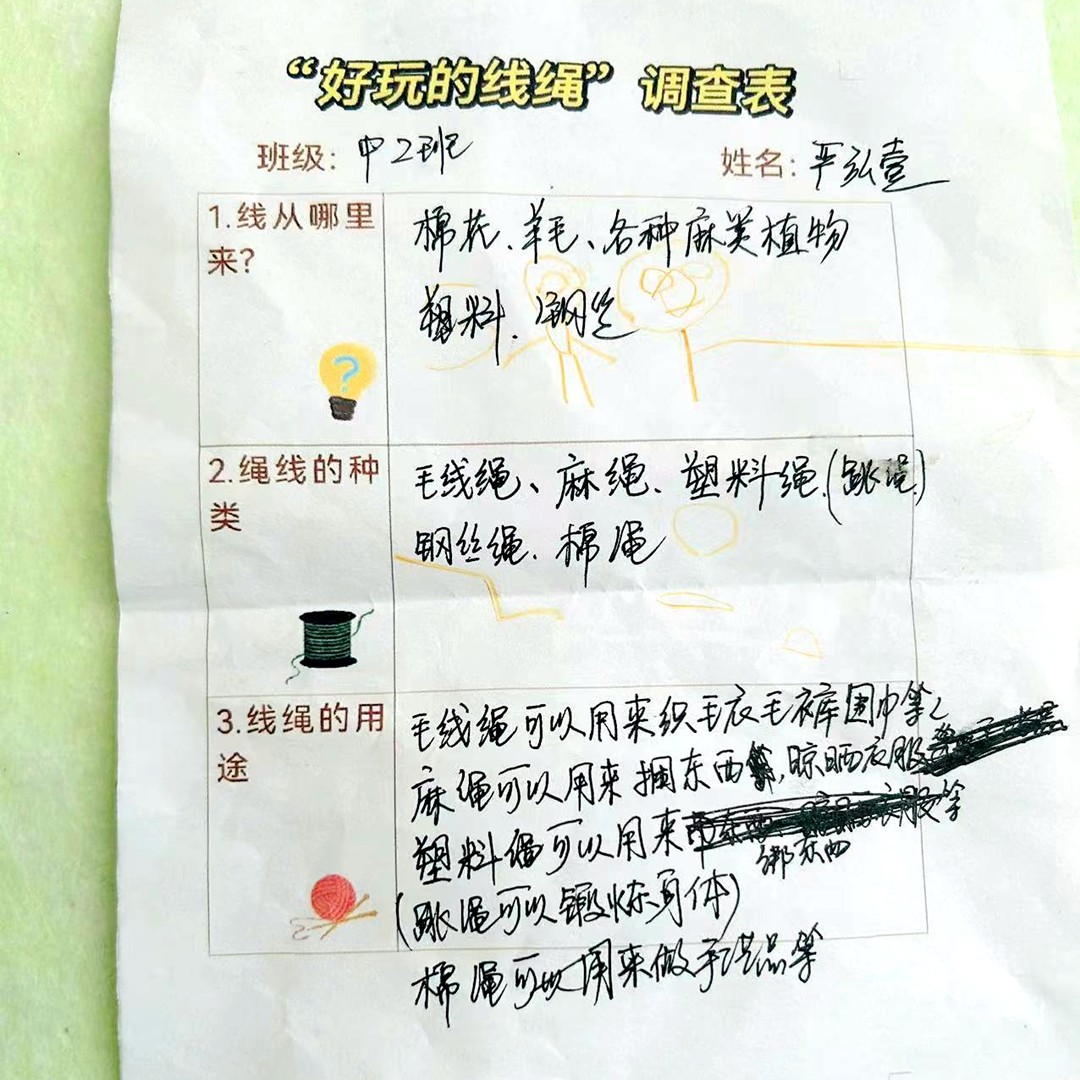 “好玩的线绳”调查表
班级：中2班 姓名：严弘壹
1.线从哪里来？
棉花、羊毛、各种麻类植物
塑料、钢丝
2.绳线的种类
毛线绳、麻绳、塑料绳(跳绳)
钢丝绳、棉绳
3.线绳的用途
毛线绳可以用来织毛衣毛裤围巾等
麻绳可以用来捆东西,晾晒衣服
塑料绳可以用来 等
绑东西
(跳绳可以锻炼身体)
棉绳可以用来做手工品等